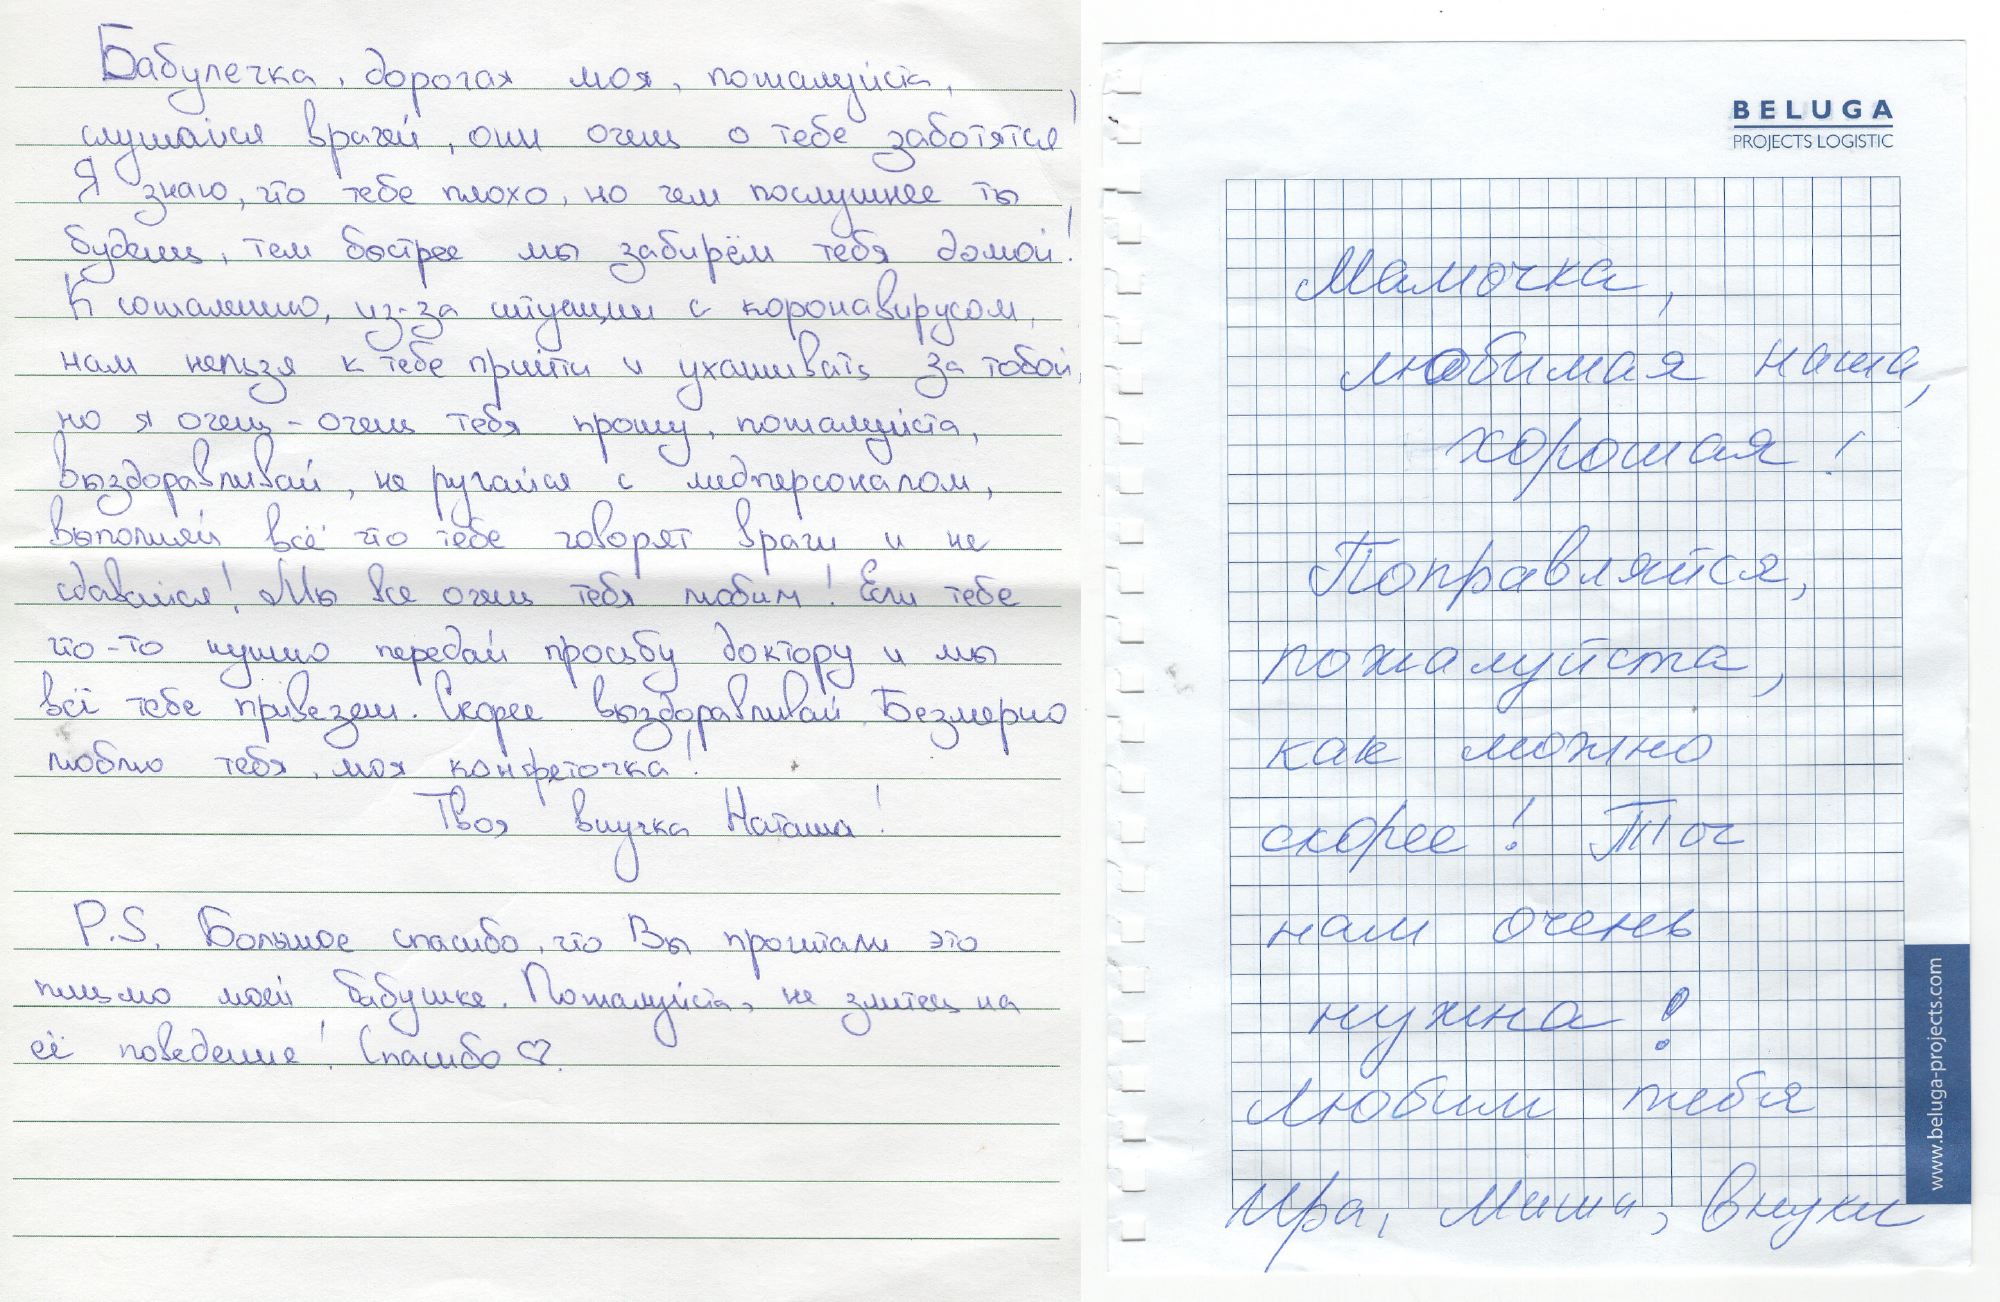 Бабулечка, дорогая моя, пожалуйста,
слушайся врачей, они очень о тебе заботятся!
Я знаю, что тебе плохо, но чем послушнее ты
будешь, тем быстрее мы забирём тебя домой!
К сожалению, из-за ситуации с коронавирусом,
нам нельзя к тебе прийти и ухаживать за тобой,
но я очень-очень тебя прошу, пожалуйста,
выздоравливай, не ругайся с медперсоналом,
выполняй всё что тебе говорят врачи и не
сдавайся! Мы все очень тебя любим! Если тебе
что-то нужно передай просьбу доктору и мы
всё тебе привезем. Скорее выздоравливай! Безмерно
люблю тебя, моя конфеточка!
Твоя внучка Наташа!
P.S. Большое спасибо, что Вы прочитали это
письмо моей бабушке. Пожалуйста, не злитесь на
её поведение! Спасибо ♡.
BELUGA
PROJECTS LOGISTIC
Мамочка,
любимая наша,
хорошая!
Поправляйся,
пожалуйста,
как можно
скорее! Ты
нам очень
нужна!
Любим тебя
Ира, Миша, внуки
www.beluga-projects.com